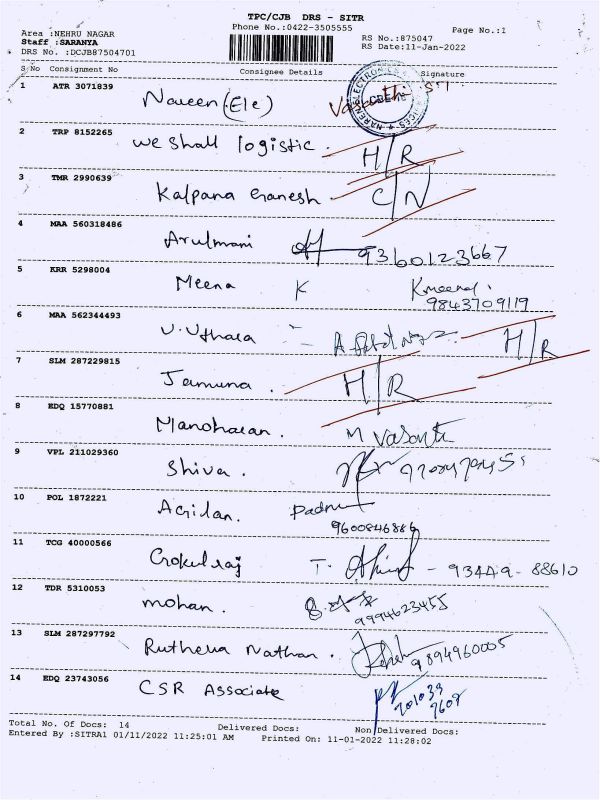 TPC/CJB DRS - SITR
Phone No.:0422-3505555
Page No.:1
Area :NEHRU NAGAR
Staff :SARANYA
DRS No. :DCJB87504701
RS No.:875047
RS Date:11-Jan-2022
S No Consignment No Consignee Details Signature
1 ATR 3071839 Naveen (Ele)
2 TRP 8152265 We Shall logistic. H/R
3 TMR 2990639 Kalpana Ganesh C/N
4 MAA 560318486 Arulmani 9360123667
5 KRR 5298004 Meena K
9843709119
6 MAA 562344493 H/R
7 SLM 287229815 Jamuna. H/R
8 EDQ 15770881 Manoharan. M Vasanti
9 VPL 211029360 Shiva.
10 POL 1872221 Agilan.
9600846886
11 TCG 40000566 Gokulraj T. - 93449-88610
12 TDR 5310053 mohan.
9994623455
13 SLM 287297792 Nathan. 9894960005
14 EDQ 23743056 CSR Associate
Total No. Of Docs: 14 Delivered Docs: Non Delivered Docs:
Entered By :SITRA1 01/11/2022 11:25:01 AM Printed On: 11-01-2022 11:28:02